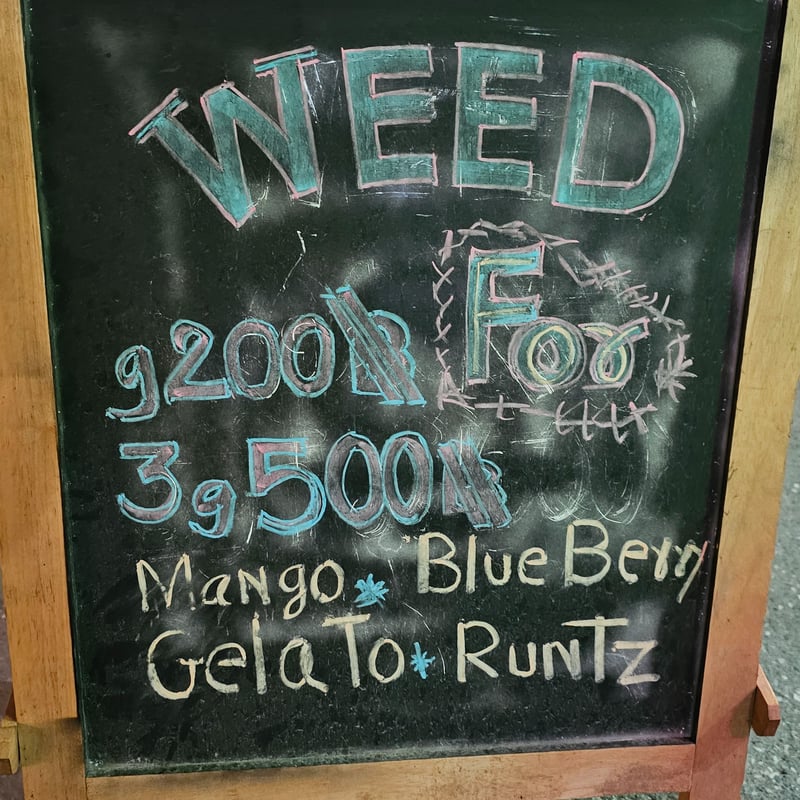 WEED
g200฿ For
3g500฿
Mango * BlueBerry
GelaTo * RunTz